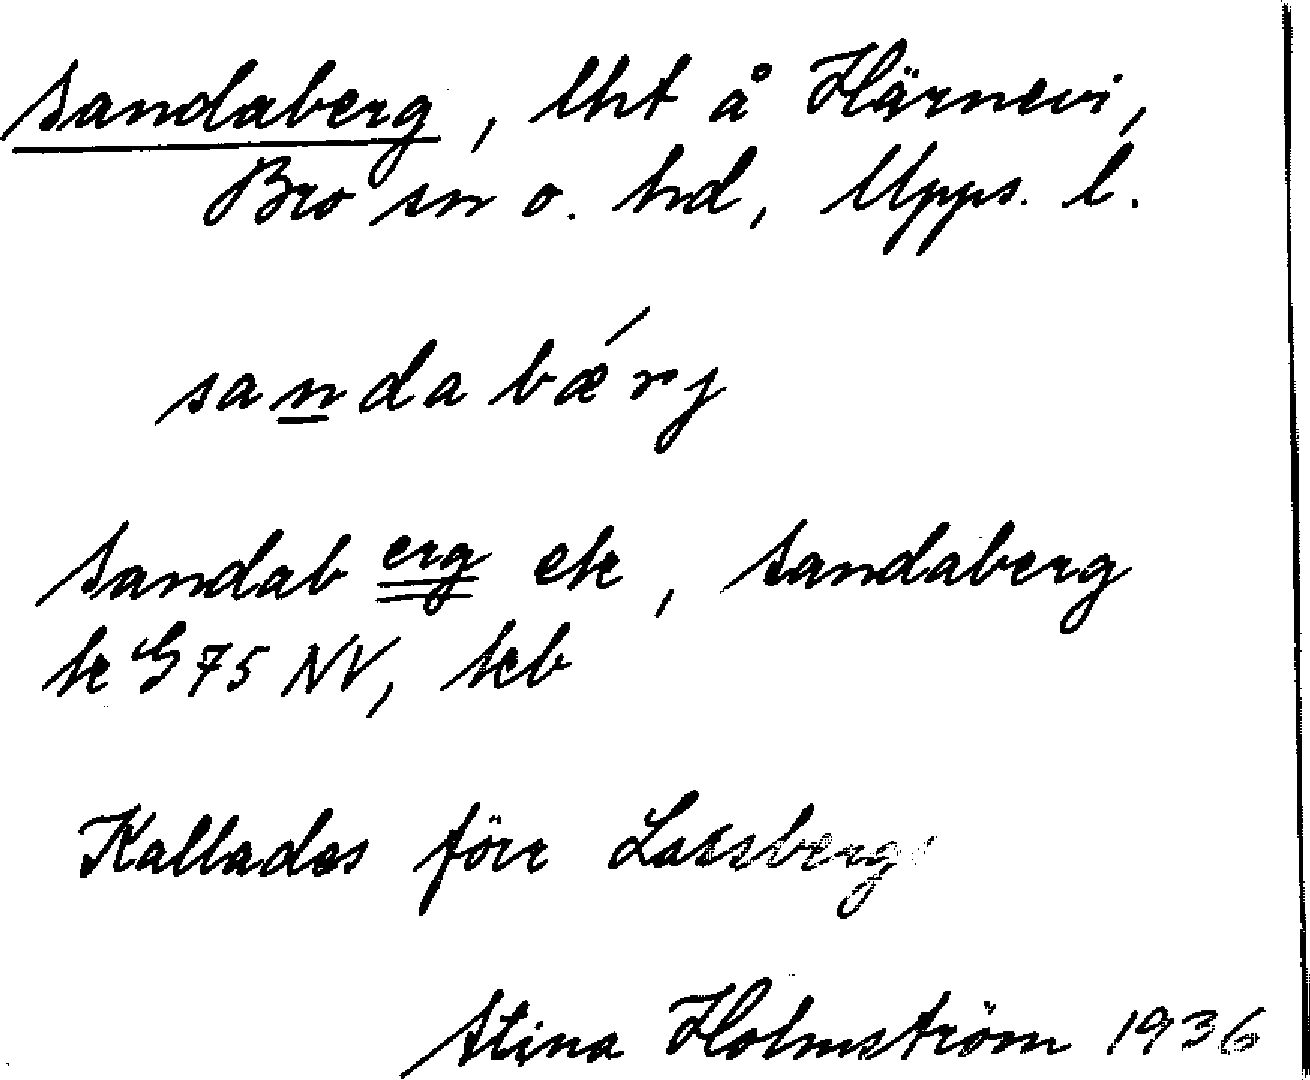 Sandaberg, lht å Härnevi,
Bro sn o. hd, Upps. l.
sandabǽrj
Sandaberg ek, Sandaberg
tk G 75 NV, kb
Kallades förr Lassberg
Stina Holmström 1936